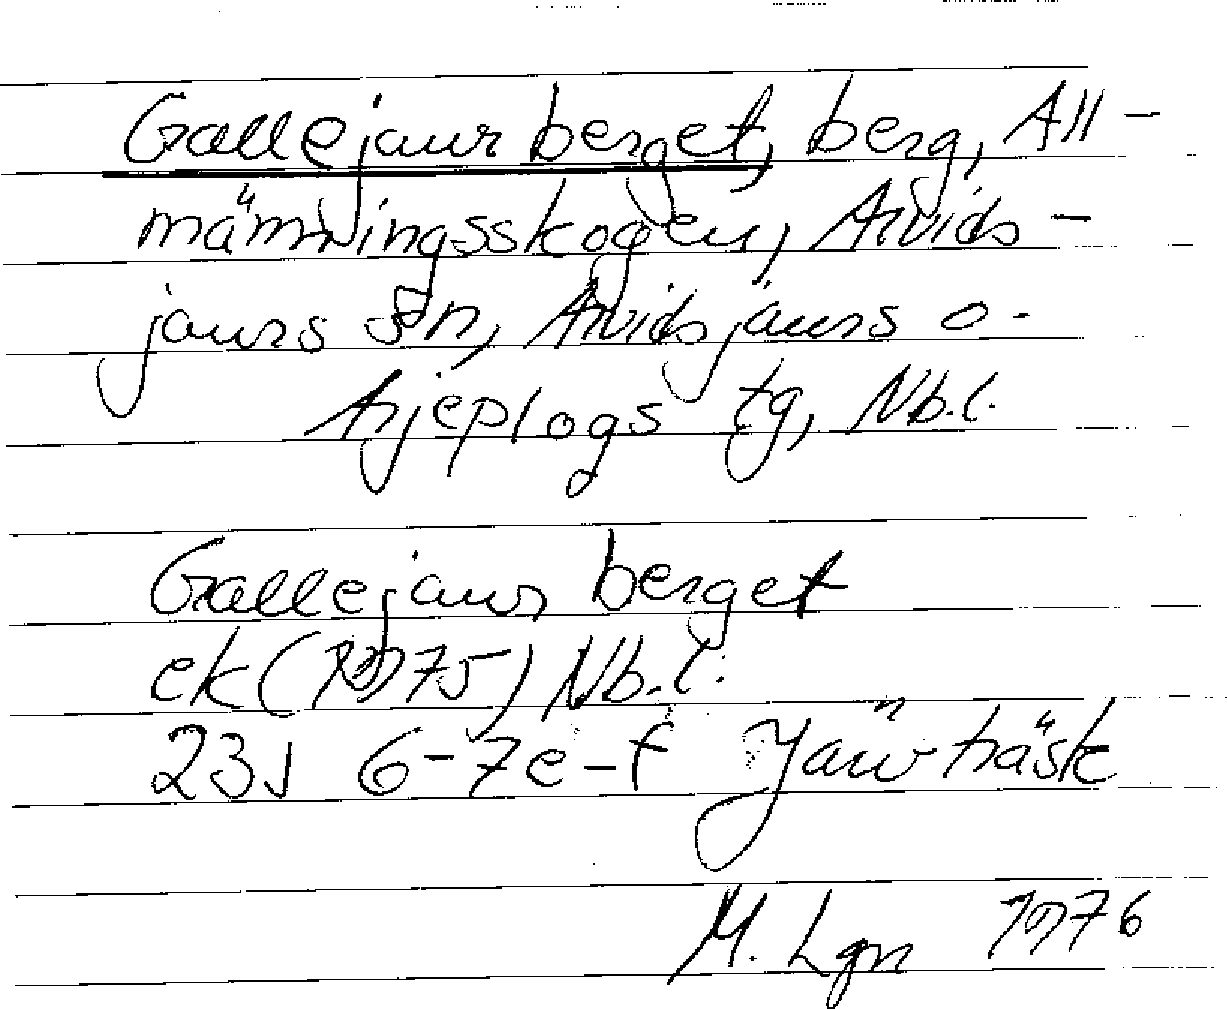 Gallejaur berget, berg, All-
männingsskogen, Arvids-
jaurs sn, Arvidsjaurs o.
Arjeplogs tg, Nb.l.
Gallejaur berget
ek (1975) Nb.l.
23J 6-7e-f Järvträsk
M. Lgn 1976